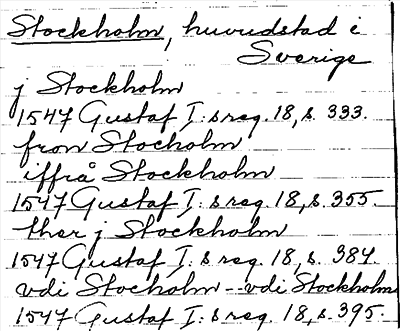 Stockholm, huvudstad i
Sverige
j Stockholm
1547 Gustaf I: s reg. 18, s. 333.
fron Stocholm
iffrå Stockholm
1547 Gustaf I: s reg. 18, s. 355.
ther j Stockholm
1547 Gustaf I: s reg. 18, s. 384.
vdi Stocholm -- vdi Stockholm
1547 Gustaf I: s reg. 18, s. 395.